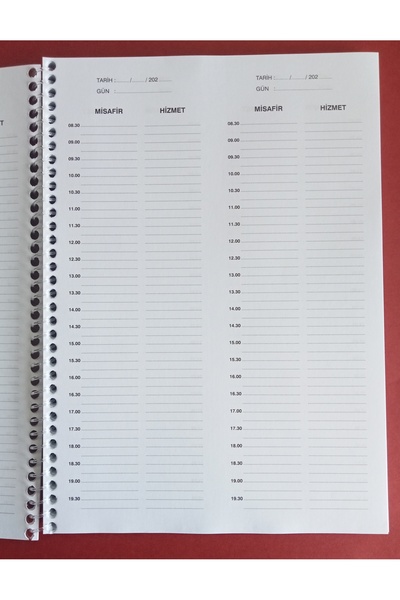 T
TARİH :....../....../202......
GÜN :....................
MİSAFİR HİZMET
08.30
09.00
09.30
10.00
10.30
11.00
11.30
12.00
12.30
13.00
13.30
14.00
14.30
15.00
15.30
16.00
16.30
17.00
17.30
18.00
18.30
19.00
19.30
TARİH :....../....../202......
GÜN :....................
MİSAFİR HİZMET
08.30
09.00
09.30
10.00
10.30
11.00
11.30
12.00
12.30
13.00
13.30
14.00
14.30
15.00
15.30
16.00
16.30
17.00
17.30
18.00
18.30
19.00
19.30